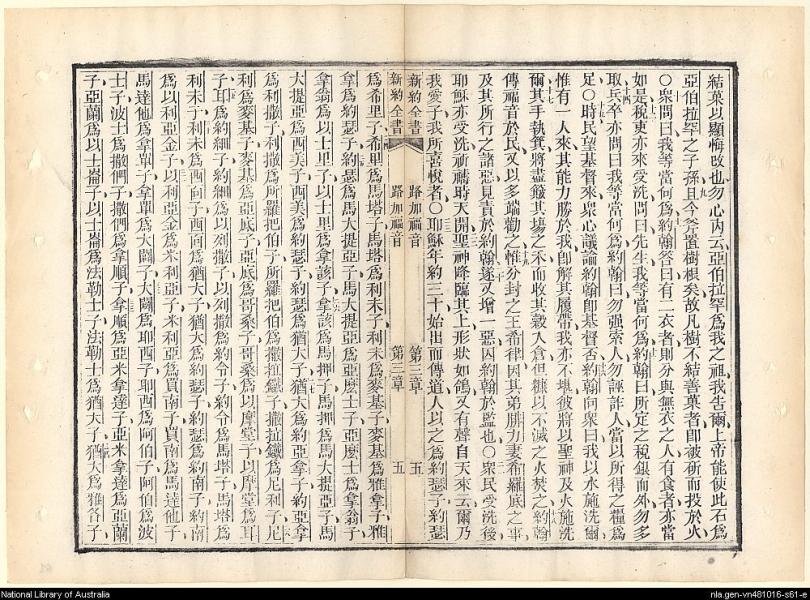 結菓以顯悔改也勿心內云亞伯拉罕爲我之祖我吿爾上帝能使此石爲
亞伯拉罕之子孫且今斧置樹根矣故凡樹不結善菓者卽被斫而投於火
○衆問曰我等當何爲約翰答曰有二衣者則分與無衣之人有食者亦當
如是稅吏亦來受洗問曰先生我等當何爲約翰曰所定之稅銀而外勿多
取兵卒亦問曰我等當何爲約翰曰勿强索人勿誣詐人當以所得之糧爲
足○時民望基督來衆心議論約翰卽基督否約翰向衆曰我以水施洗爾
惟有一人來其能力勝於我卽解其履帶我亦不堪彼將以聖神及火施洗
爾其手執箕將盡簸其場之禾而收其穀入倉但糠以不滅之火焚之約翰
傳福音於民又以多端勸之惟分封之王希律因其弟腓力妻希羅底之事
及其所行之諸惡見責於約翰遂又增一惡因約翰於監也○衆民受洗後
耶穌亦受洗祈禱時天開聖神降臨其上形狀如鴿又有聲自天來云爾乃
我愛子我所喜悅者○耶穌年約三十始出而傳道人以之爲約瑟子約瑟
新約全書 路加福音 第三章 五
新約全書 路加福音 第三章 五
爲希里子希里爲馬塔子馬塔爲利未子利未爲麥基子麥基爲雅拿子雅
拿爲約瑟子約瑟爲馬大提亞子馬大提亞爲亞麼士子亞麼士爲拿翁子
拿翁爲以士里子以士里爲拿該子拿該爲馬押子馬押爲馬大提亞子馬
大提亞爲西美子西美爲約瑟子約瑟爲猶大子猶大爲約亞拿子約亞拿
爲利撒子利撒爲所羅把伯子所羅把伯爲撒拉鐵子撒拉鐵爲尼利子尼
利爲麥基子麥基爲亞底子亞底爲哥桑子哥桑爲以摩堂子以摩堂爲耳
子耳爲約細子約細爲以列撒子以列撒爲約令子約令爲馬塔子馬塔爲
利未子利未爲西面子西面爲猶大子猶大爲約瑟子約瑟爲約南子約南
爲以利亞金子以利亞金爲米利亞子米利亞爲買南子買南爲馬達他子
馬達他爲拿單子拿單爲大闢子大闢爲耶西子耶西爲阿伯子阿伯爲波
士子波士爲撒們子撒們爲拿順子拿順爲亞米拿達子亞米拿達爲亞蘭
子亞蘭爲以士崙子以士崙爲法勒士子法勒士爲猶大子猶大爲雅各子
National Library of Australia
nla.gen-vn481016-s61-e